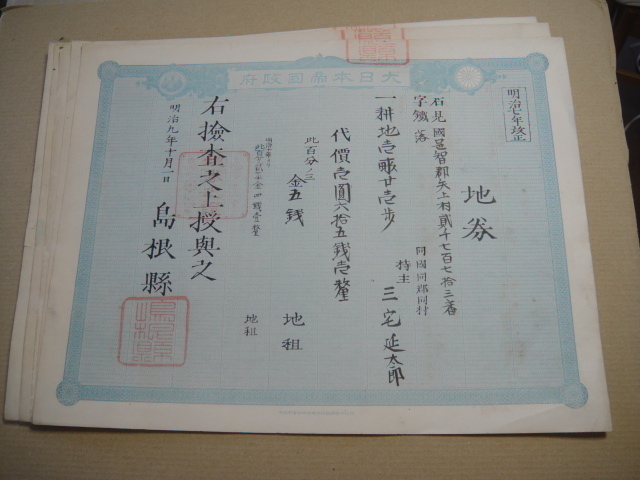 大日本帝國政府
明治七年改正
地券
石見國邑智郡矢上村貳千七百七拾三番
字鐵落
同國同郡同村
一耕地壱畝廿壱歩
持主 三宅延太郎
代價壱圓六拾五銭壱釐
此百分ノ三
金五銭 地租
地租
右撿査之上授與之
明治九年十月一日
島根縣